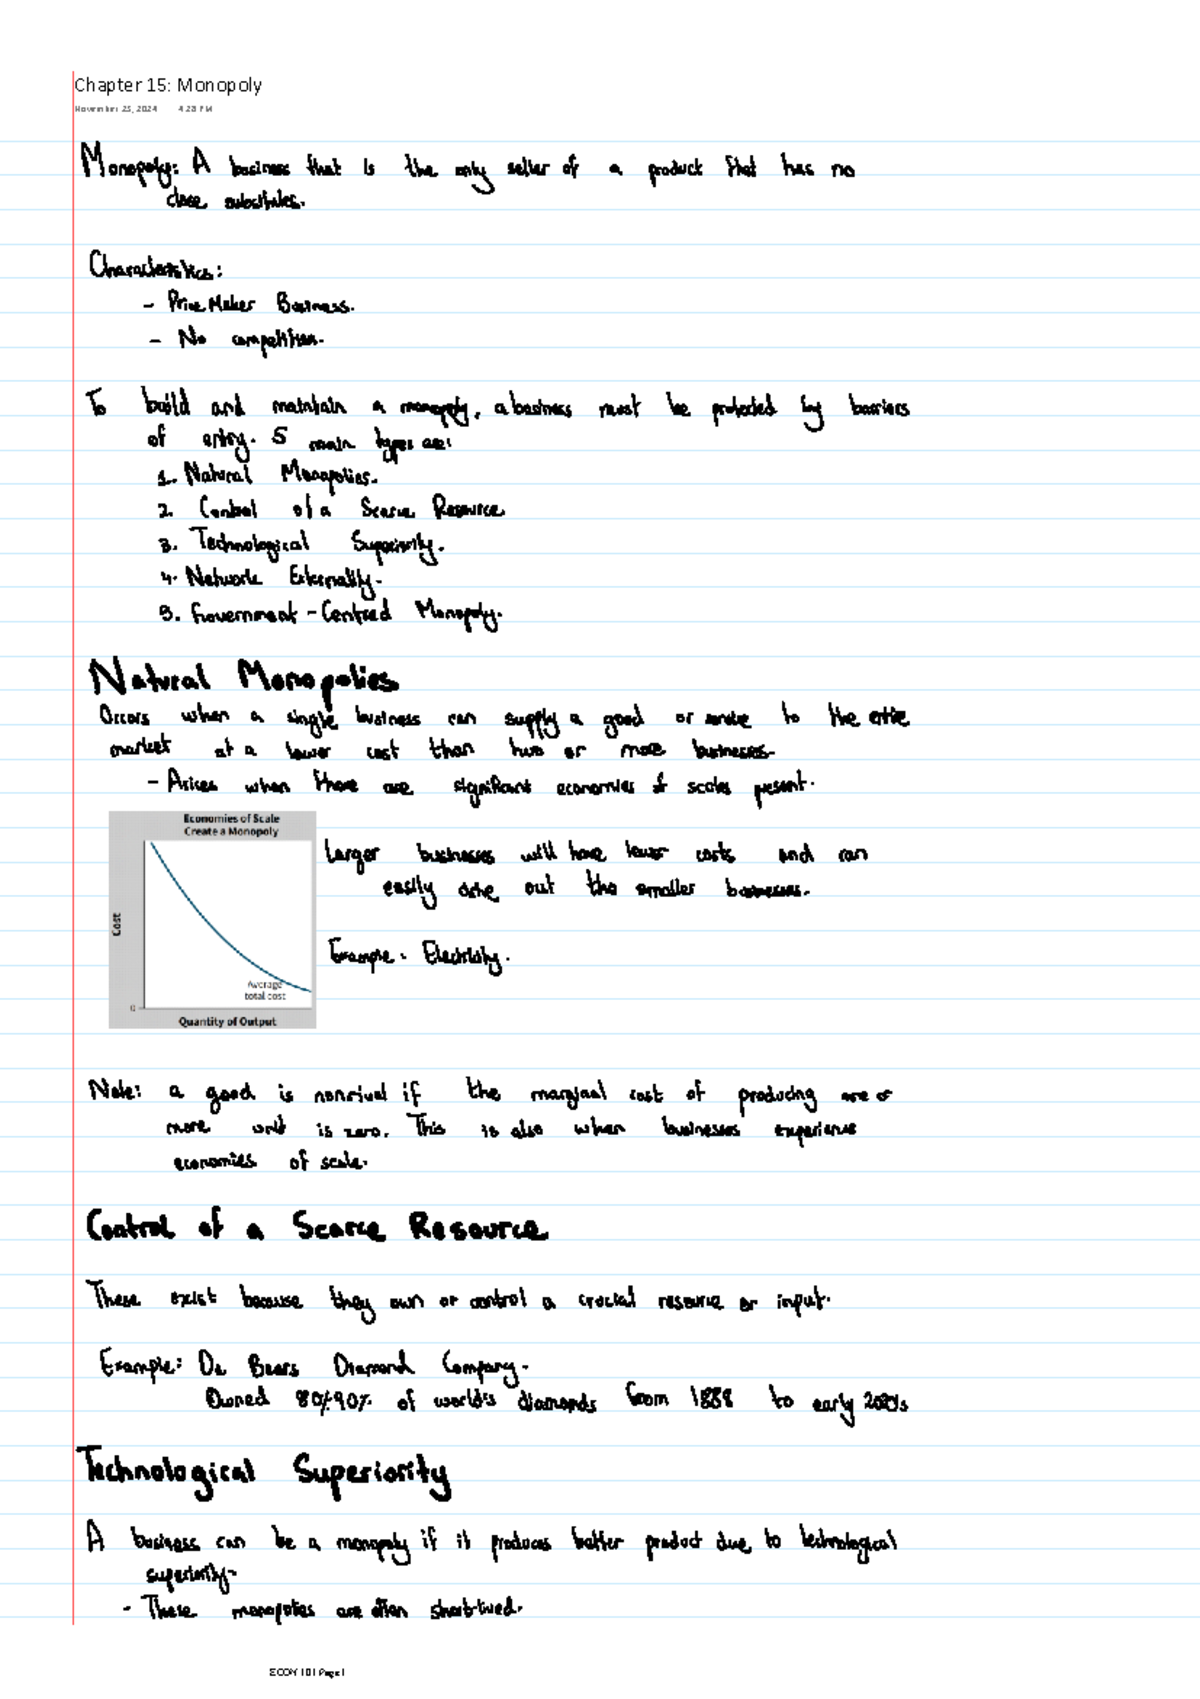 Chapter 15: Monopoly
November 25, 2024 4:28 PM
Monopoly: A business that is the only seller of a product that has no
close substitutes.
Characteristics:
- Price Maker Business.
- No competition.
To build and maintain a monopoly, a business must be protected by barriers
of entry. 5 main types are:
1. Natural Monopolies.
2. Control of a Scarce Resource
3. Technological Superiority.
4. Network Externality.
5. Government-Centred Monopoly.
Natural Monopolies
Occurs when a single business can supply a good or service to the entire
market at a lower cost than two or more businesses.
- Arises when there are significant economies of scales present.
Economies of Scale
Create a Monopoly
Cost
Average
total cost
0
Quantity of Output
Larger businesses will have lower costs and can
easily drive out the smaller businesses.
Example: Electricity.
Note: a good is nonrival if the marginal cost of producing one or
more unit is zero. This is also when businesses experience
economies of scale.
Control of a Scarce Resource
These exist because they own or control a crucial resource or input.
Example: De Beers Diamond Company.
Owned 80%-90% of world's diamonds from 1888 to early 2000s
Technological Superiority
A business can be a monopoly if it produces better product due to technological
superiority.
- These monopolies are often short-lived.
ECON 101 Page 1